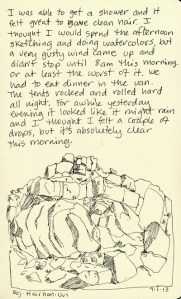 I was able to get a shower and it
felt great to have clean hair. I
thought I would spend the afternoon
sketching and doing watercolors, but
a very gusty wind came up and
didn't stop until 8am this morning.
or at least the worst of it. we
had to eat dinner in the van.
The tents rocked and rolled hard
all night. For awhile yesterday
evening it looked like it might rain
and I thought I felt a couple of
drops, but it's absolutely clear
this morning.